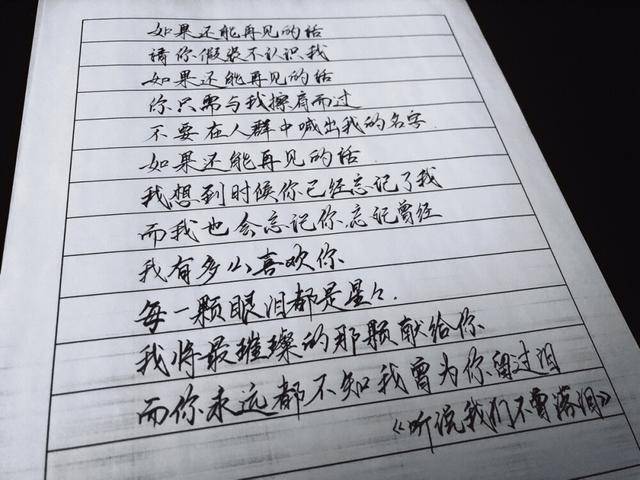 如果还能再见的话
请你假装不认识我
如果还能再见的话
你只需与我擦肩而过
不要在人群中喊出我的名字
如果还能再见的话
我想到时候你已经忘记了我
而我也会忘记你,忘记曾经
我有多么喜欢你
每一颗眼泪都是星々.
我将最璀璨的那颗献给你
而你永远都不知我曾为你留过泪
《听说我们不曾落泪》